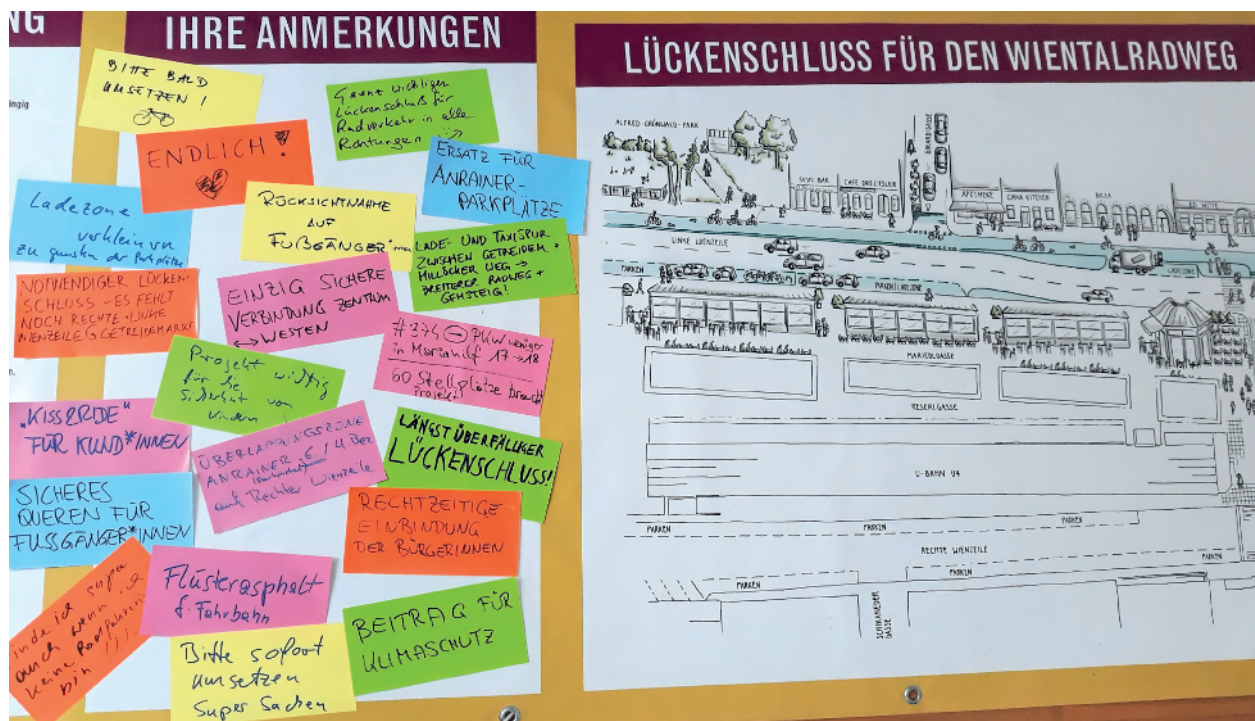 NG
IHRE ANMERKUNGEN
BITTE BALD
UMSETZEN!
Ganz wichtiger
Lückenschluß für
Radverkehr in alle
Richtungen
ENDLICH!
ERSATZ FÜR
ANRAINER-
PARKPLÄTZE
Ladezone
verkleinern
zu gunsten der Parkplätze
RÜCKSICHTNAHME
AUF
FUßGÄNGER*innen
LADE- UND TAXISPUR
ZWISCHEN GETREIDEM. +
MILLÖCKER WEG →
BREITERER RADWEG +
GEHSTEIG!
NOTWENDIGER LÜCKEN-
SCHLUSS - ES FEHLT
NOCH RECHTE + LINKE
WIENZEILE GETREIDEMARKT
EINZIG SICHERE
VERBINDUNG ZENTRUM
↔ WESTEN
#374 ⊖ PKW weniger
in Mariahilf 17 → 18
60 Stellplätze braucht
Projekt
Projekt wichtig
für die
Sicherheit von
Kindern!
"KISS&RIDE"
FÜR KUND*INNEN
ÜBERLAPPUNGSZONE
ANRAINER 6./4 Bez
auf Rechter Wienzeile
LÄNGST ÜBERFÄLLIGER
LÜCKENSCHLUSS!
SICHERES
QUEREN FÜR
FUSSGÄNGER*INNEN
RECHTZEITIGE
EINBINDUNG
DER BÜRGERINNEN
inde ich super
auch wenn ich
keine Radfahrerin
bin !!!
Flüsterasphalt
f. Fahrbahn
BEITRAG FÜR
KLIMASCHUTZ
Bitte sofort
umsetzen
Super Sachen
LÜCKENSCHLUSS FÜR DEN WIENTALRADWEG
ALFRED-GRÜNWALD-PARK
GIRARDIGASSE
SAVOY BAR
CAFE DRECHSLER
APOTHEKE
CHINA KITCHEN
BILLA
LINKE WIENZEILE
LADEZONE
PARKEN
PARKEN/LADEZONE
MARIEDLGASSE
RESERLGASSE
U-BAHN U4
PARKEN
PARKEN
PARKEN
RECHTE WIENZEILE
PARKEN
PARKEN
PARKEN
SCHIKANEDER
GASSE